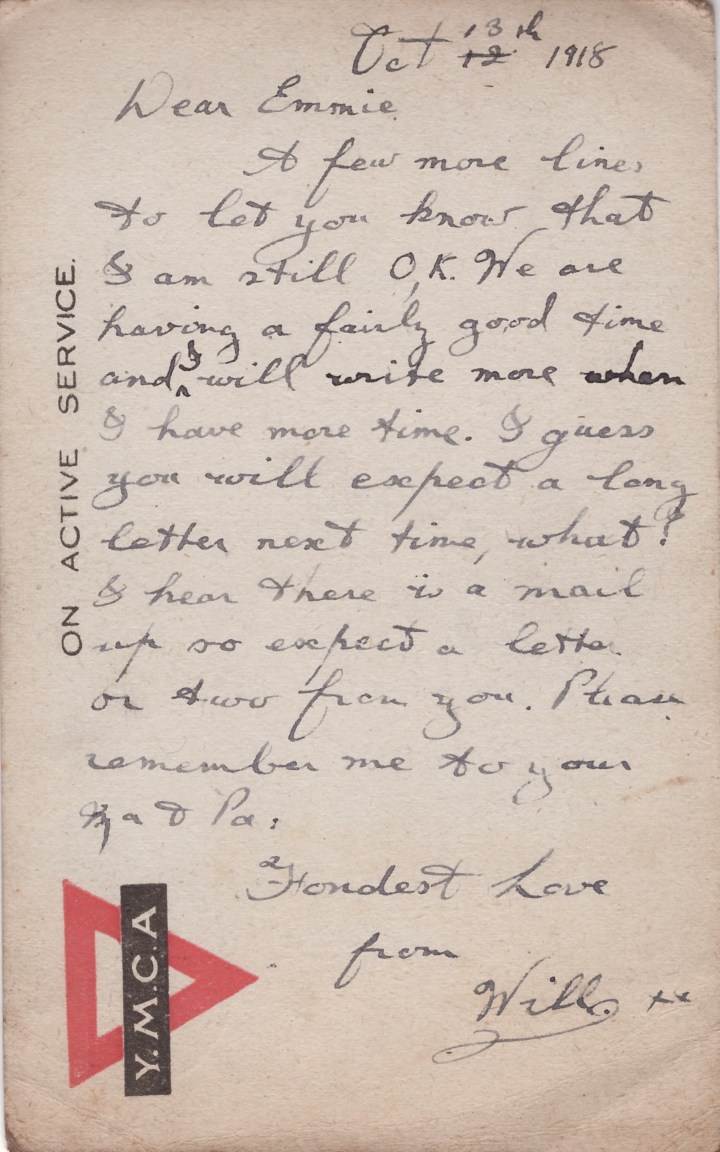 Oct 13th 1918
Dear Emmie
A few more lines
to let you know that
I am still O.K. We are
having a fairly good time
and I will write more when
I have more time. I guess
you will expect a long
letter next time, what?
I hear there is a mail
up so expect a letter
or two from you. Please
remember me to your
Ma & Pa.
Fondest Love
from
Will. xx
ON ACTIVE SERVICE.
Y.M.C.A